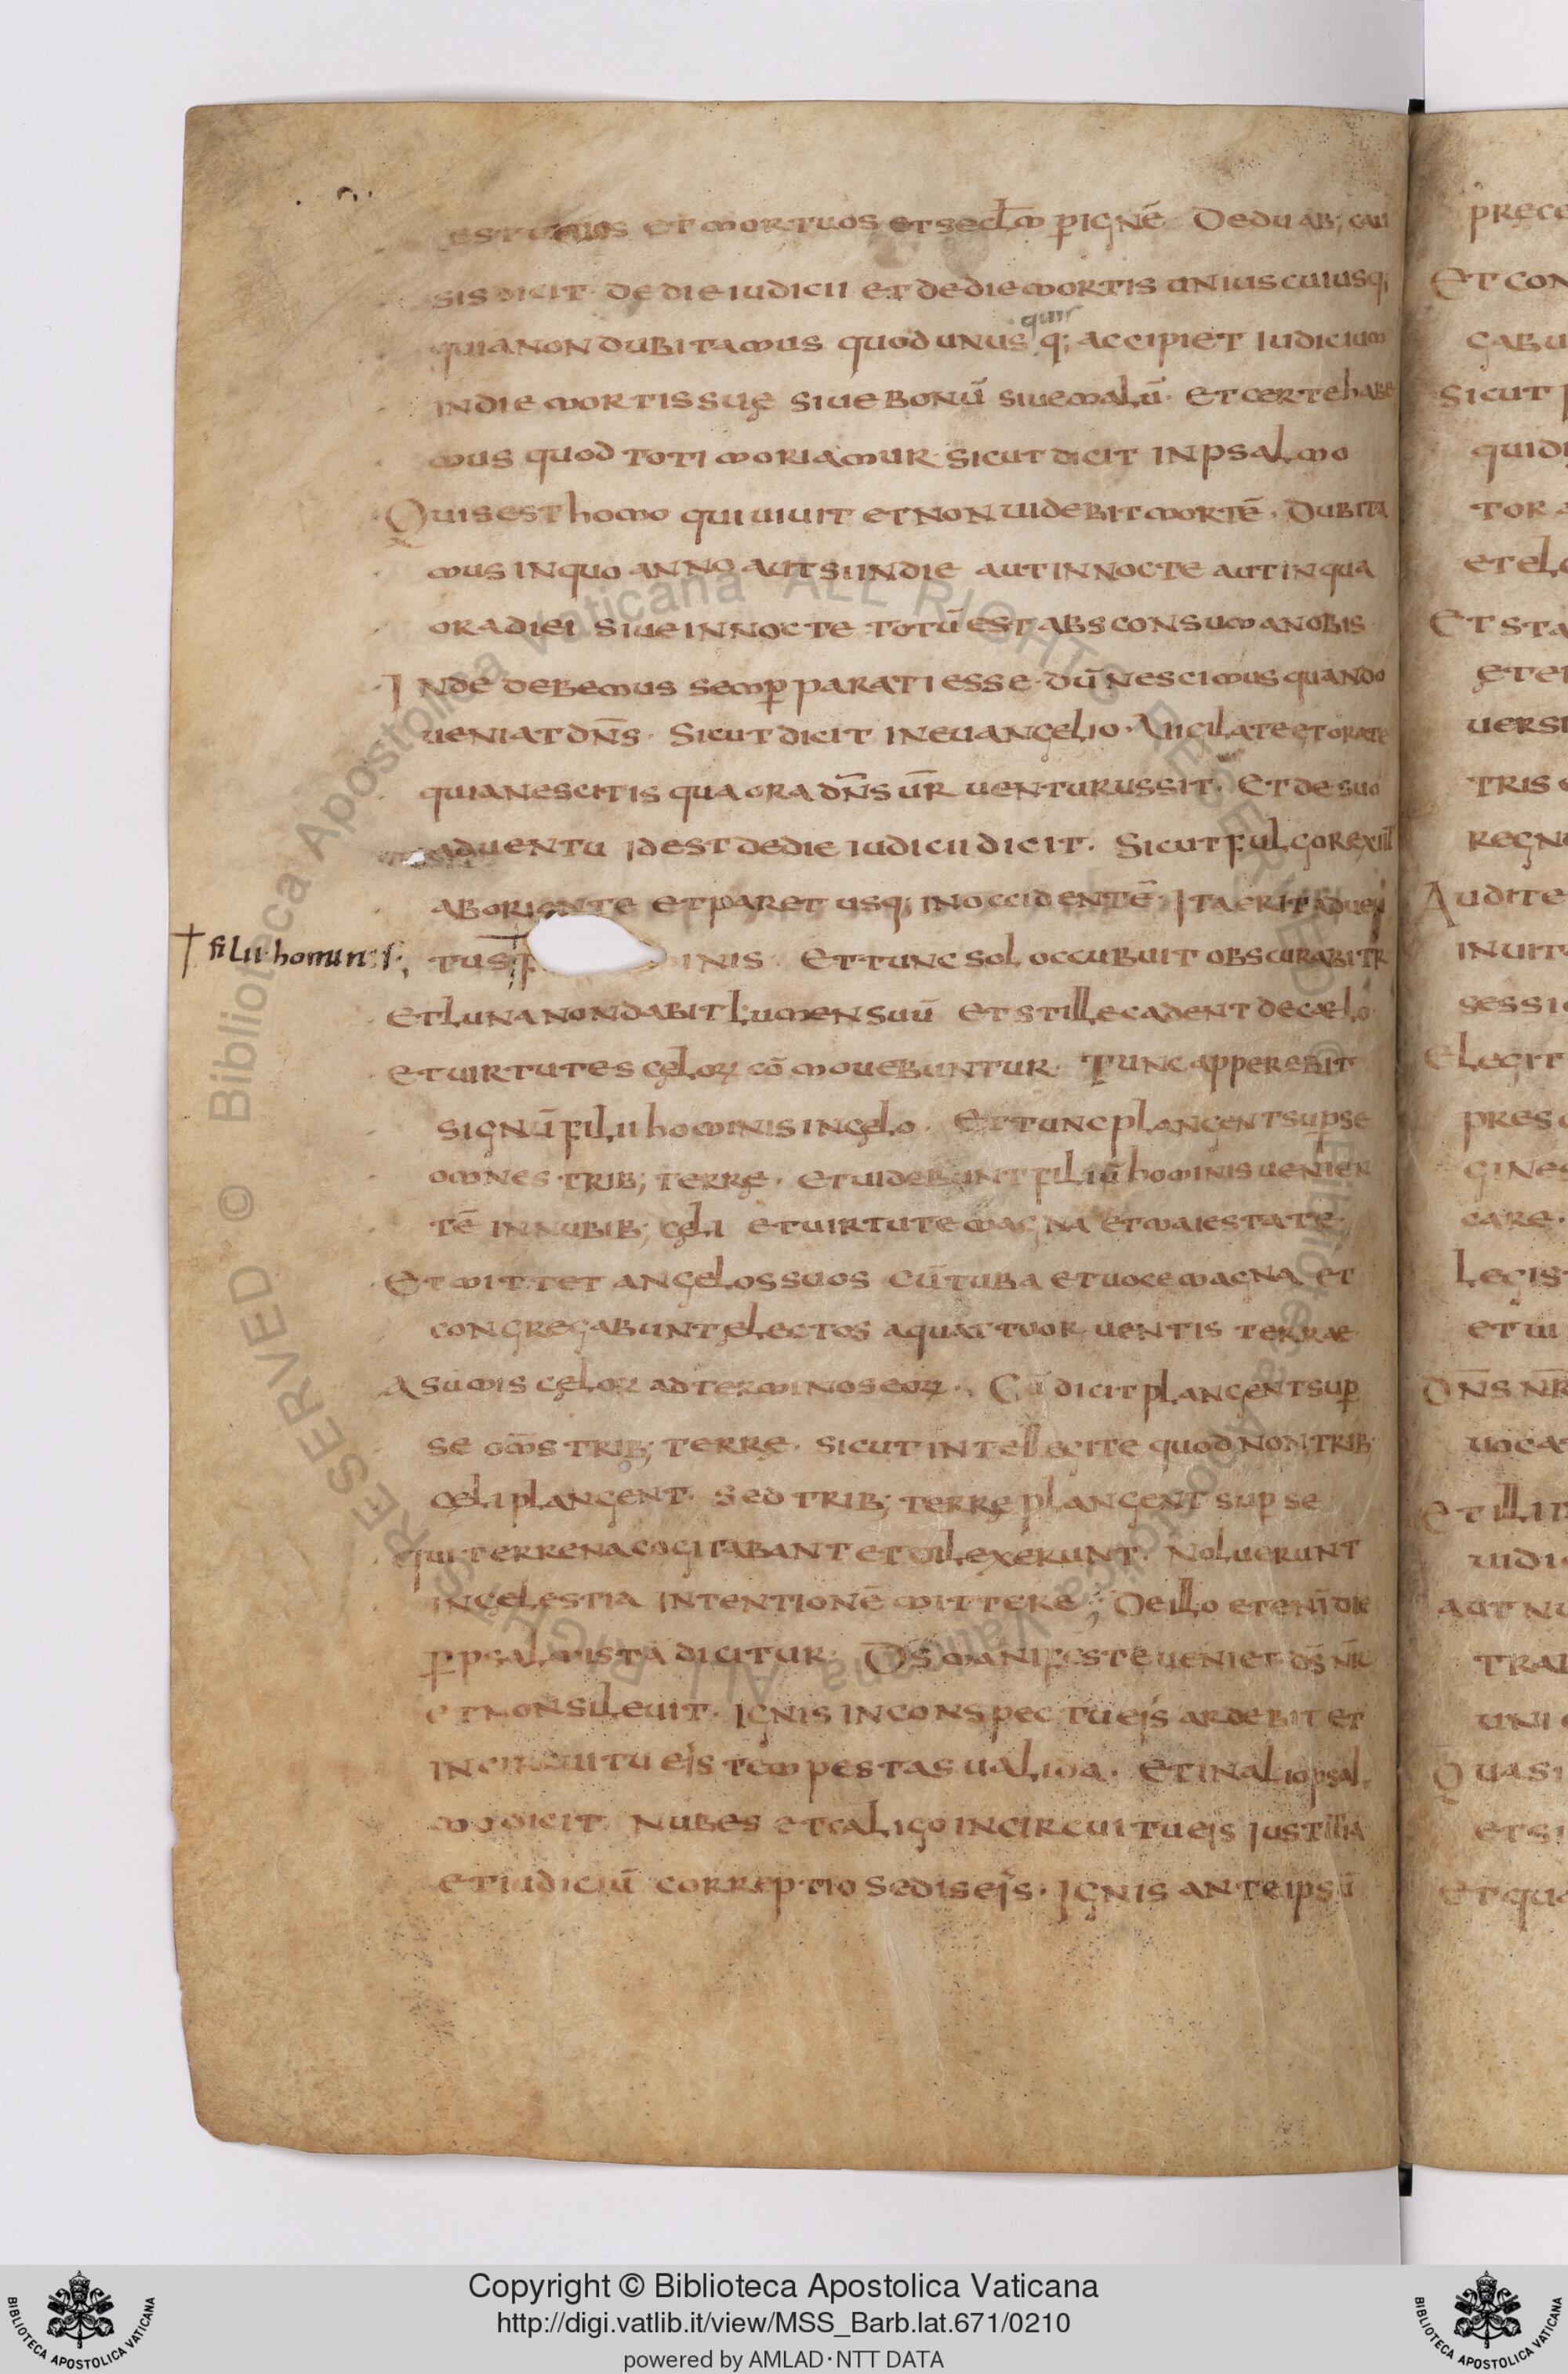 est uiuos et mortuos et secl̄m ꝑ ignē. De duab; cau
sis dicit. de die iudicii et de die mortis unius cuiusq;
quia non dubitamus quod unus quis q; accipiet iudicium
in die mortis suę siue bonū siue malū. et certe habe
mus quod toti moriamur. sicut dicit in psalmo
Quis est homo qui uiuit et non uidebit mortē. Dubita
mus in quo anno aut si in die aut in nocte aut in qua
ora diei siue in nocte. totū est absconsum a nobis
Inde debemus semꝑ parati esse. dū nescimus quando
ueniat dn̄s. Sicut dicit in euangelio. Uigilate et orate
quia nescitis qua ora dn̄s ur̄ uenturus sit. Et de suo
aduentu id est de die iudicii dicit. Sicut fulgor exiit
ab oriente et paret usq; in occidentē. Ita erit aduen
† filii hominis;
tus inis. Et tunc sol occubuit obscurabitr
et luna non dabit lumen suū et stille cadent de cælo
et uirtutes cęloꝝ cōmouebuntur. Tunc apperebit
signū filii hominis in cęlo. Et tunc plangent suꝑ se
omnes trib; terrę. et uidebunt filiū hominis uenien
tē in nubib; cęli et uirtute magna et maiestate.
Et mittet angelos suos cū tuba et uoce magna et
congregabunt ęlectos a quattuor uentis terrae
A sūmis cęloꝝ ad terminos eoꝝ. Cū dicit plangent suꝑ
se om̄s trib; terrę. sicut intellegite quod non trib;
cęli plangent. sed trib; terrę plangent suꝑ se
qui terrena cogitabant et dilexerunt. Noluerunt
in cęlestia intentionē mittere; De illo etenī die
ꝑ psalmista dicitur. D̄s manifeste ueniet d̄s nr̄
et non sileuit. Ignis in conspectu eis ardebit et
in circuitu eis tempestas ualida. Et in alio psal
mo dicit. Nubes et caligo in circuitu eis iustitia
et iudiciū correptio sedis eis. Ignis ante ipsū
prece
Et con
gabu
Sicut
quidi
tor
et ele
Et sta
uersi
tris
regn
Audite
inuit
sessi
Elegit
pres
gines
care.
Legis
et ui
Dn̄s nr̄
uoca
et illi
iudi
aut nu
tra
uni
Quasi
et si
et qu
© Biblioteca Apostolica Vaticana ALL RIGHTS RESERVED © Biblioteca Apostolica Vaticana ALL RIGHTS RESERVED
BIBLIOTECA APOSTOLICA VATICANA
Copyright © Biblioteca Apostolica Vaticana
http://digi.vatlib.it/view/MSS_Barb.lat.671/0210
powered by AMLAD·NTT DATA
BIBLIOTECA APOSTOLICA VATICANA